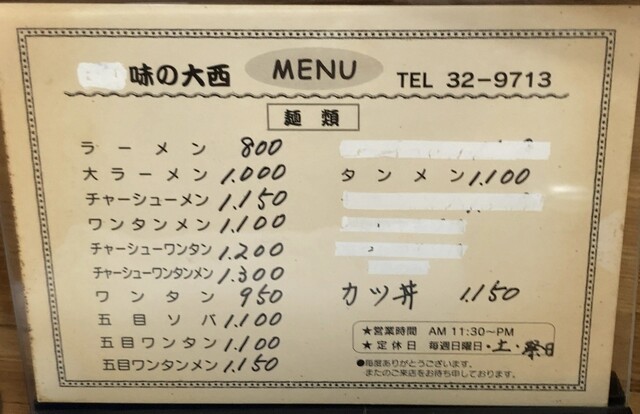 味の大西 MENU TEL 32-9713
麺類
ラーメン 800
大ラーメン 1.000
チャーシューメン 1.150
ワンタンメン 1.100
チャーシューワンタン 1.200
チャーシューワンタンメン 1.300
ワンタン 950
五目ソバ 1.100
五目ワンタン 1.100
五目ワンタンメン 1.150
タンメン 1.100
カツ丼 1.150
★営業時間 AM 11:30~PM
★定休日 毎週日曜日・土・祭日
●毎度ありがとうございます。
またのご来店をお待ち申しております。